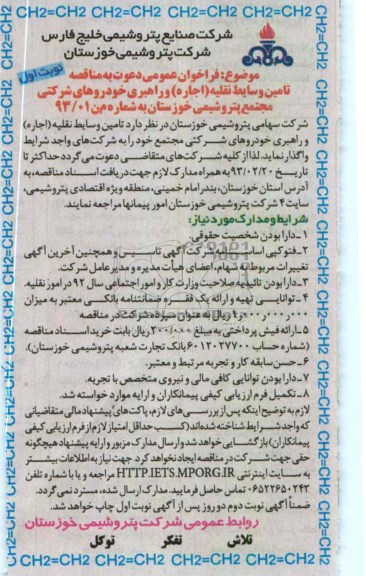 CH2=CH2 CH2=CH2 CH2=CH2 CH2=CH2 CH2=CH2
شرکت صنایع پتروشیمی خلیج فارس
شرکت پتروشیمی خوزستان
نوبت اول
موضوع: فراخوان عمومی دعوت به مناقصه
تامین وسایط نقلیه (اجاره) و راهبری خودروهای شرکتی
مجتمع پتروشیمی خوزستان به شماره م‌ن ۹۳/۰۱
شرکت سهامی پتروشیمی خوزستان در نظر دارد تامین وسایط نقلیه (اجاره)
و راهبری خودروهای شرکتی مجتمع خود را به شرکت‌های واجد شرایط
واگذار نماید. لذا از کلیه شرکت‌های متقاضی دعوت می‌گردد حداکثر تا
تاریخ ۹۳/۰۲/۲۰ به همراه مدارک لازم جهت دریافت اسناد مناقصه، به
آدرس استان خوزستان، بندر امام خمینی، منطقه ویژه اقتصادی پتروشیمی،
سایت ۴ شرکت پتروشیمی خوزستان امور پیمانها مراجعه نمایند.
شرایط و مدارک مورد نیاز:
۱ـ دارا بودن شخصیت حقوقی.
۲ـ فتوکپی اساسنامه شرکت، آگهی تاسیس و همچنین آخرین آگهی
تغییرات مربوط به سهام، اعضای هیأت مدیره و مدیر عامل شرکت.
۳ـ دارا بودن تائیدیه صلاحیت وزارت کار و امور اجتماعی سال ۹۲ در امور نقلیه.
۴ـ توانایی تهیه و ارائه یک فقره ضمانتنامه بانکی معتبر به میزان
ریال به عنوان سپرده شرکت در مناقصه
۵ـ ارائه فیش پرداختی به مبلغ ۲۰۰/۰۰۰ ریال بابت خرید اسناد مناقصه
(شماره حساب ۶۰۱۲۰۲۷۷۰۰ بانک تجارت شعبه پتروشیمی خوزستان).
۶ـ حسن سابقه کار و تجربه مرتبط و معتبر.
۷ـ دارا بودن توانایی کافی مالی و نیروی متخصص با تجربه.
۸ـ تکمیل فرم ارزیابی کیفی پیمانکاران و ارایه موارد خواسته شد.
لازم به توضیح اینکه پس از بررسی‌های لازم، پاکت‌های پیشنهاد مالی متقاضیانی
که واجد شرایط شناخته شده‌اند (کسب حداقل امتیاز لازم از فرم ارزیابی کیفی
پیمانکاران) بازگشایی خواهد شد و ارسال مدارک مزبور و ارایه پیشنهاد هیچگونه
حقی جهت شرکت در مناقصه ایجاد نخواهد کرد. جهت نیاز به اطلاعات بیشتر
به سایت اینترنتی HTTP.IETS.MPORG.IR مراجعه و یا با شماره تلفن
۰۶۵۲۲۶۵۰۲۴۳ تماس حاصل فرمایید. مدارک ارسال شده، مسترد نمی‌گردد.
ضمناً آگهی نوبت دوم دو روز پس از آگهی نوبت اول چاپ خواهد شد.
روابط عمومی شرکت پتروشیمی خوزستان
تلاش تفکر توکل
CH2=CH2 CH2=CH2 CH2=CH2 CH2=CH2 CH2=CH2